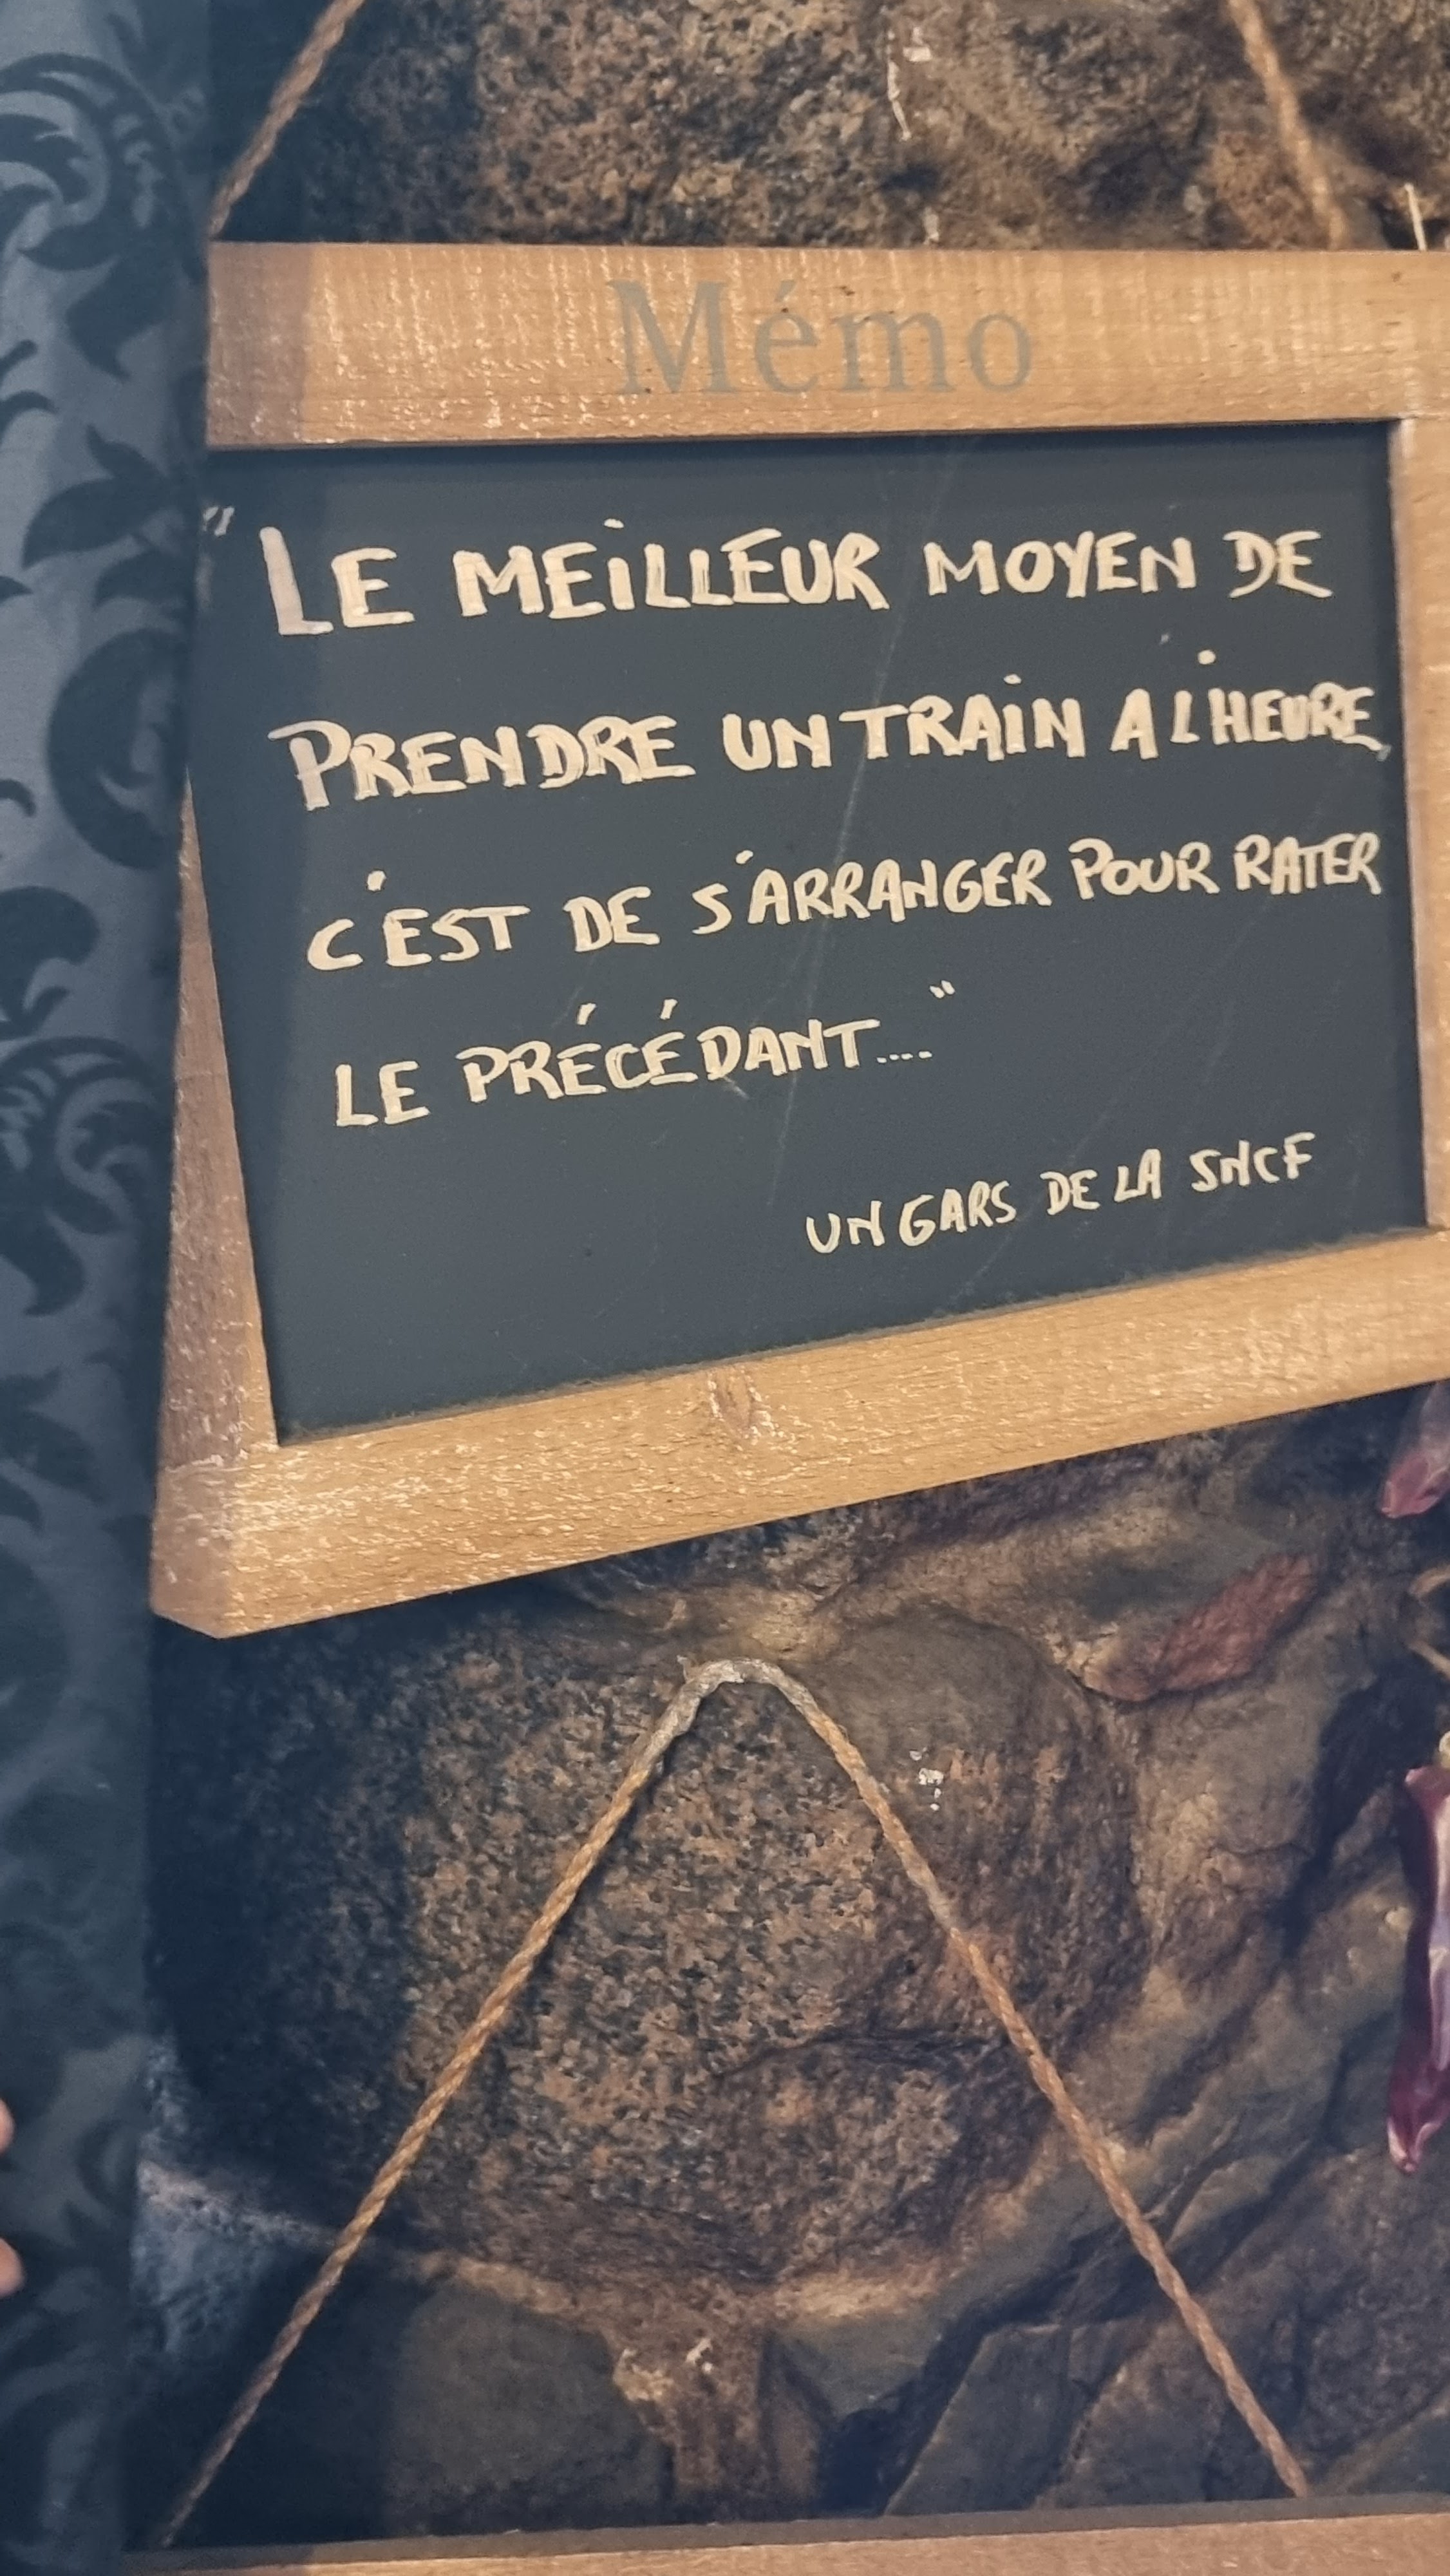 Mémo
"LE MEiLLEUR MOYEN DE
PRENDRE UN TRAiN A L'HEURE,
C'EST DE S'ARRANGER POUR RATER
LE PRÉCÉDANT...."
UN GARS DE LA SNCF